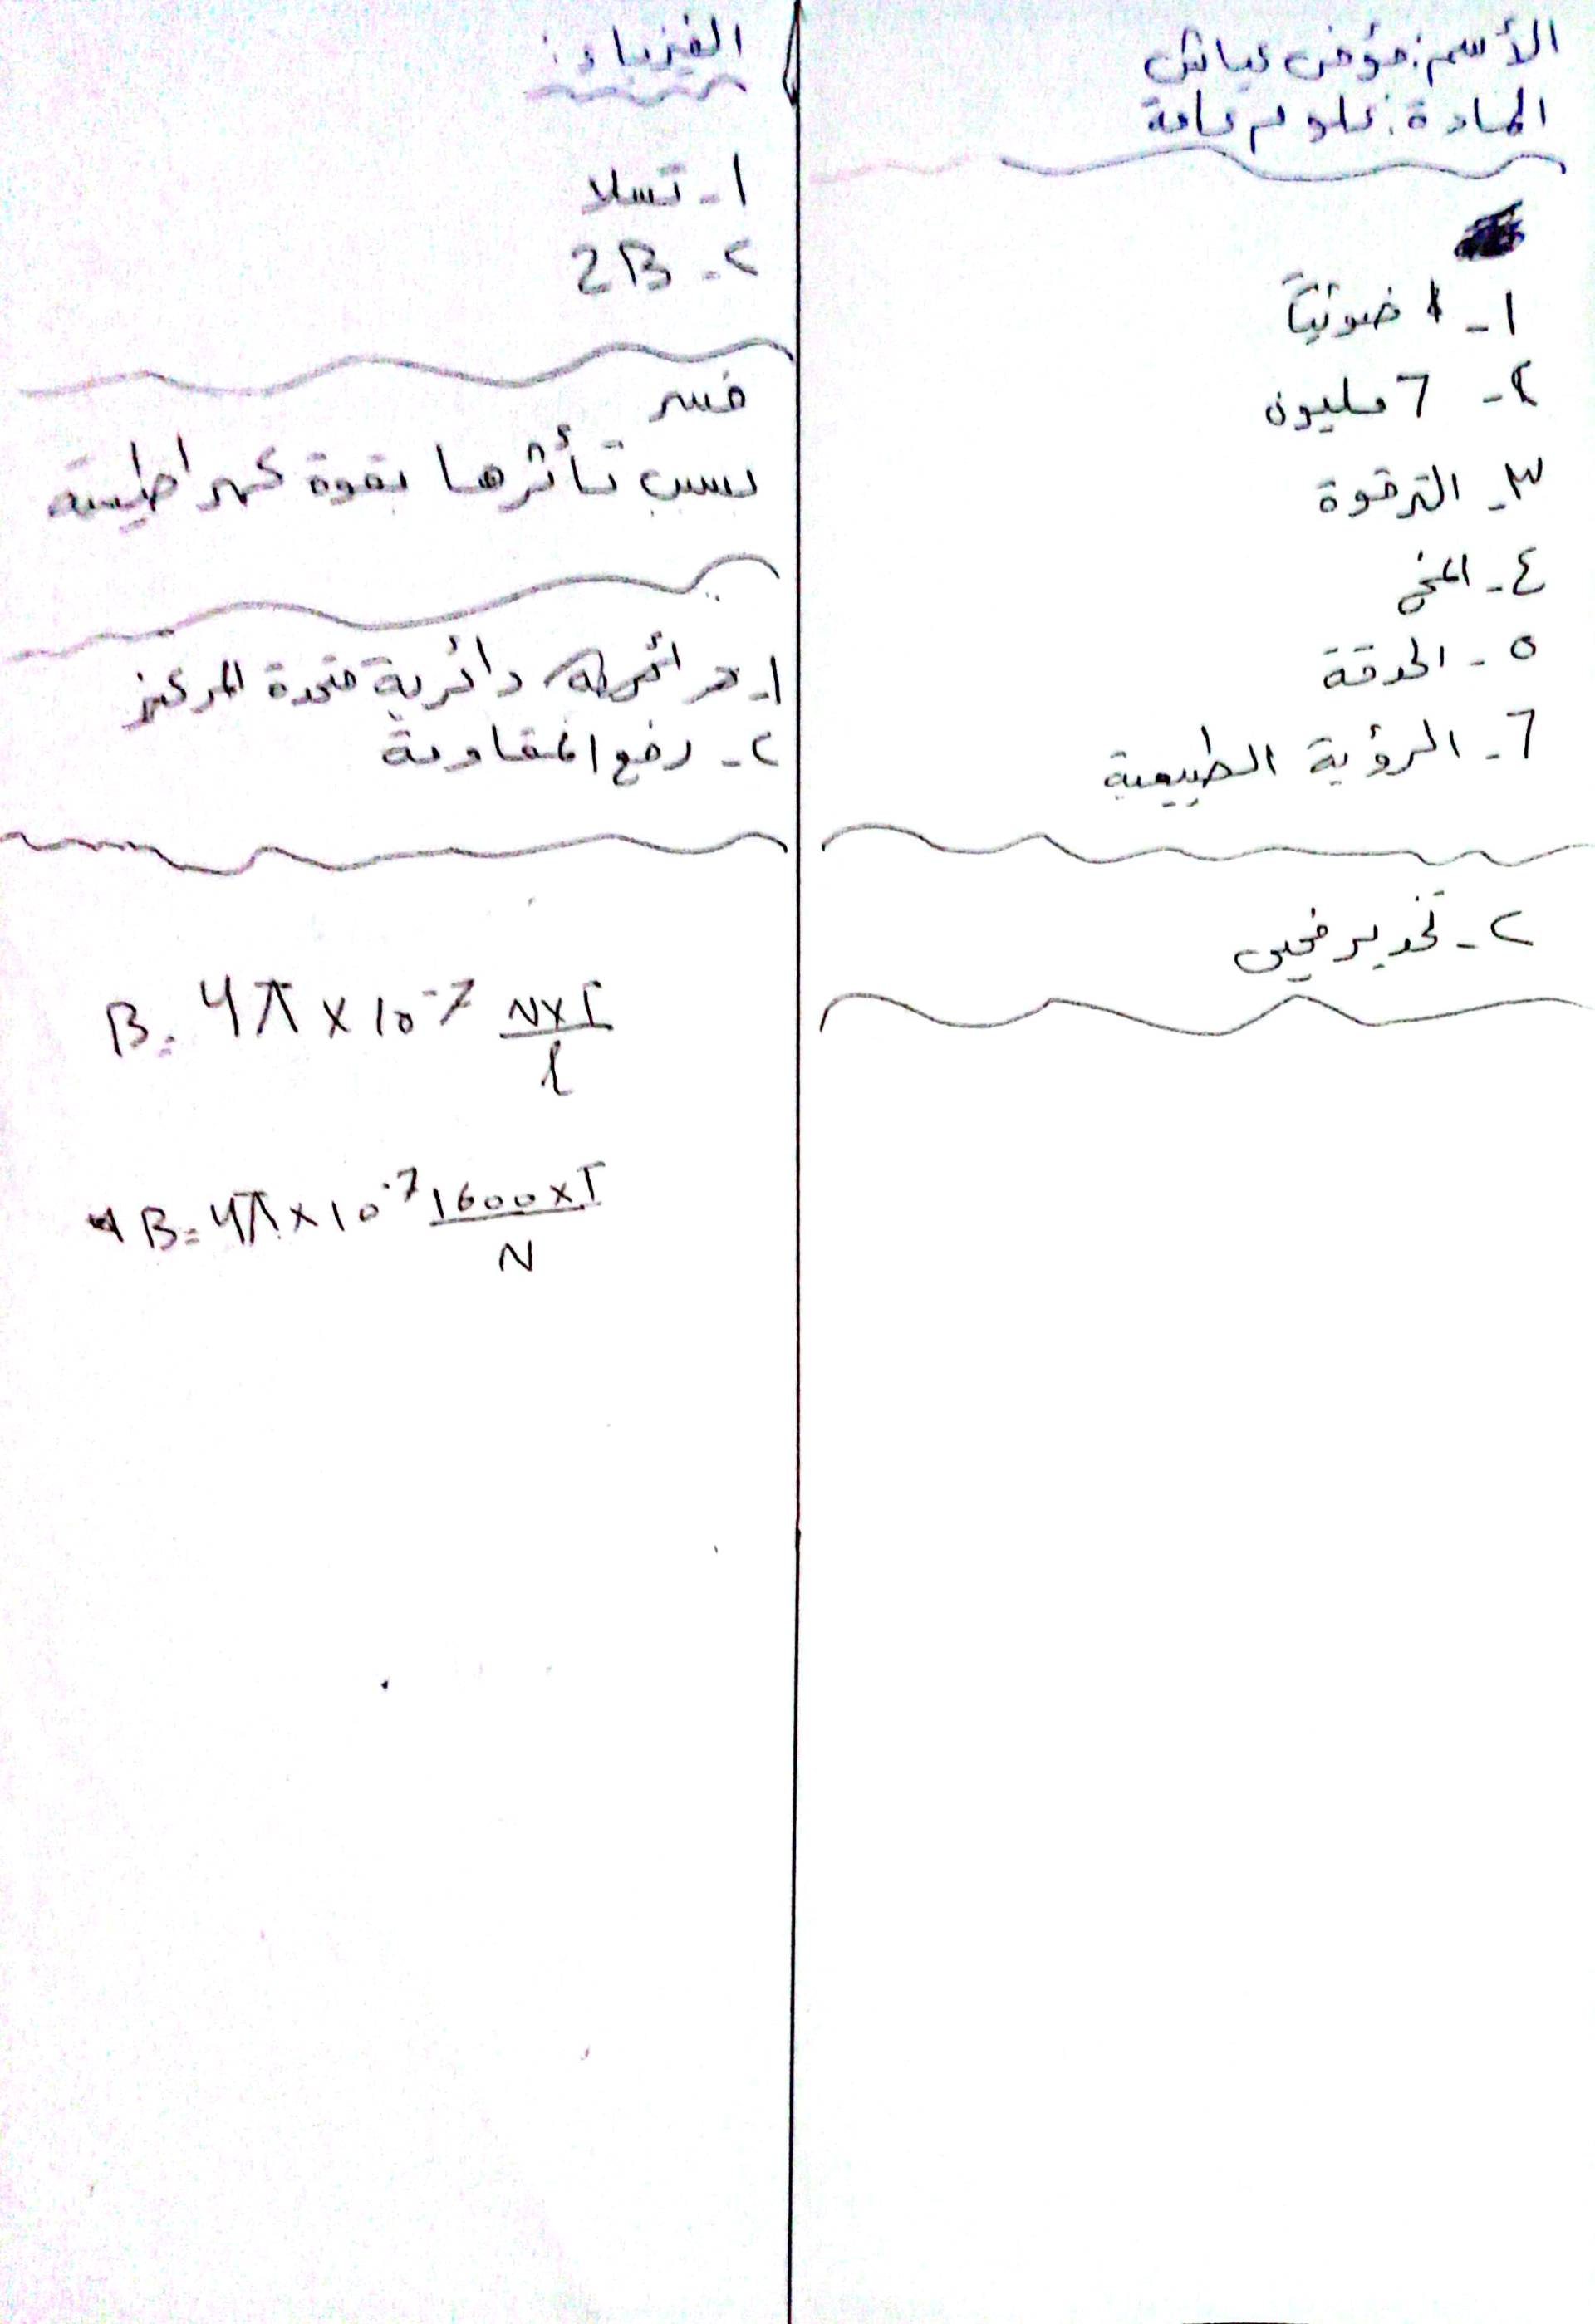 الأسم: مؤمن عياش
المادة: علوم عامة
١- ضوئياً
٢- 6 مليون
٣- الترقوة
٤- المخ
٥- الحدقة
6- الرؤية الطبيعية
٢- تخدير
الفيزياء:
١- تسلا
٢- 2B
فسر
بسبب تأثرها بقوة كهراطيسية
١- دائرية متحدة المركز
٢- رفع المقاومة
B = 4π × 10⁻⁷ N×I / l
B = 4π × 10⁻⁷ 1600×I / N